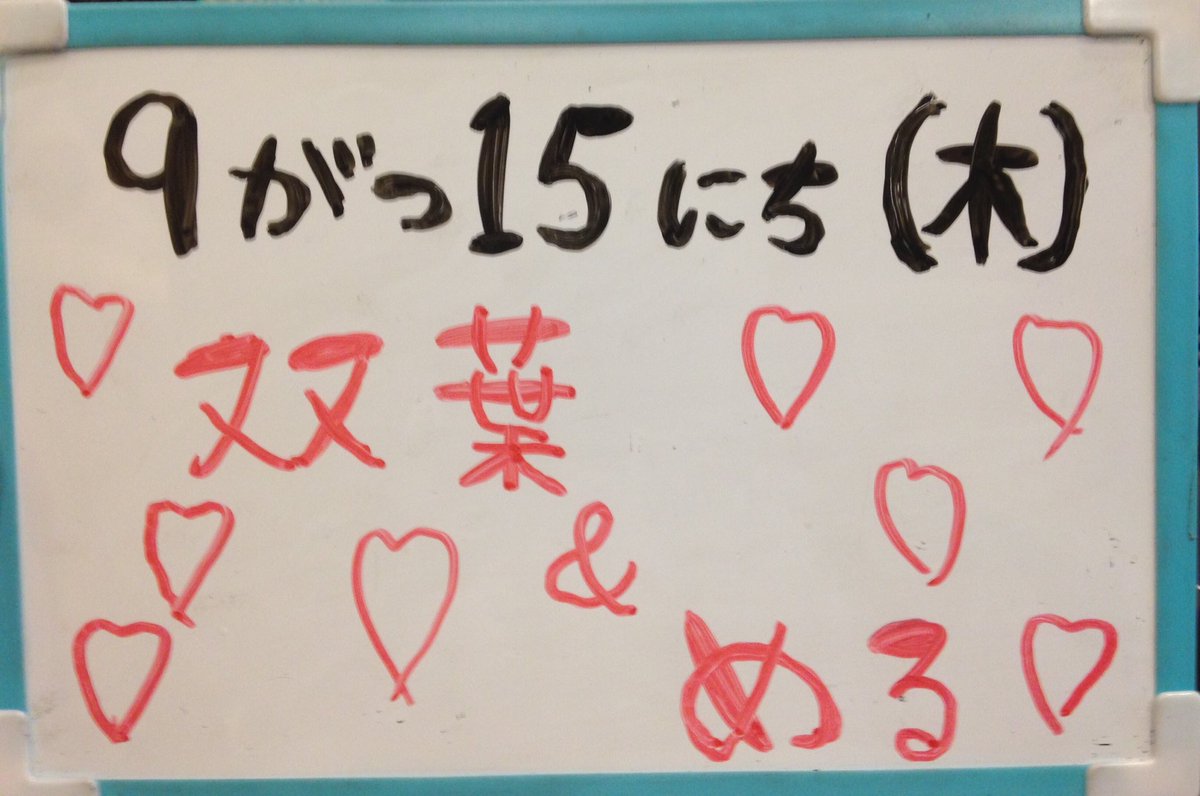 9がつ15にち(木)
双葉
&
める